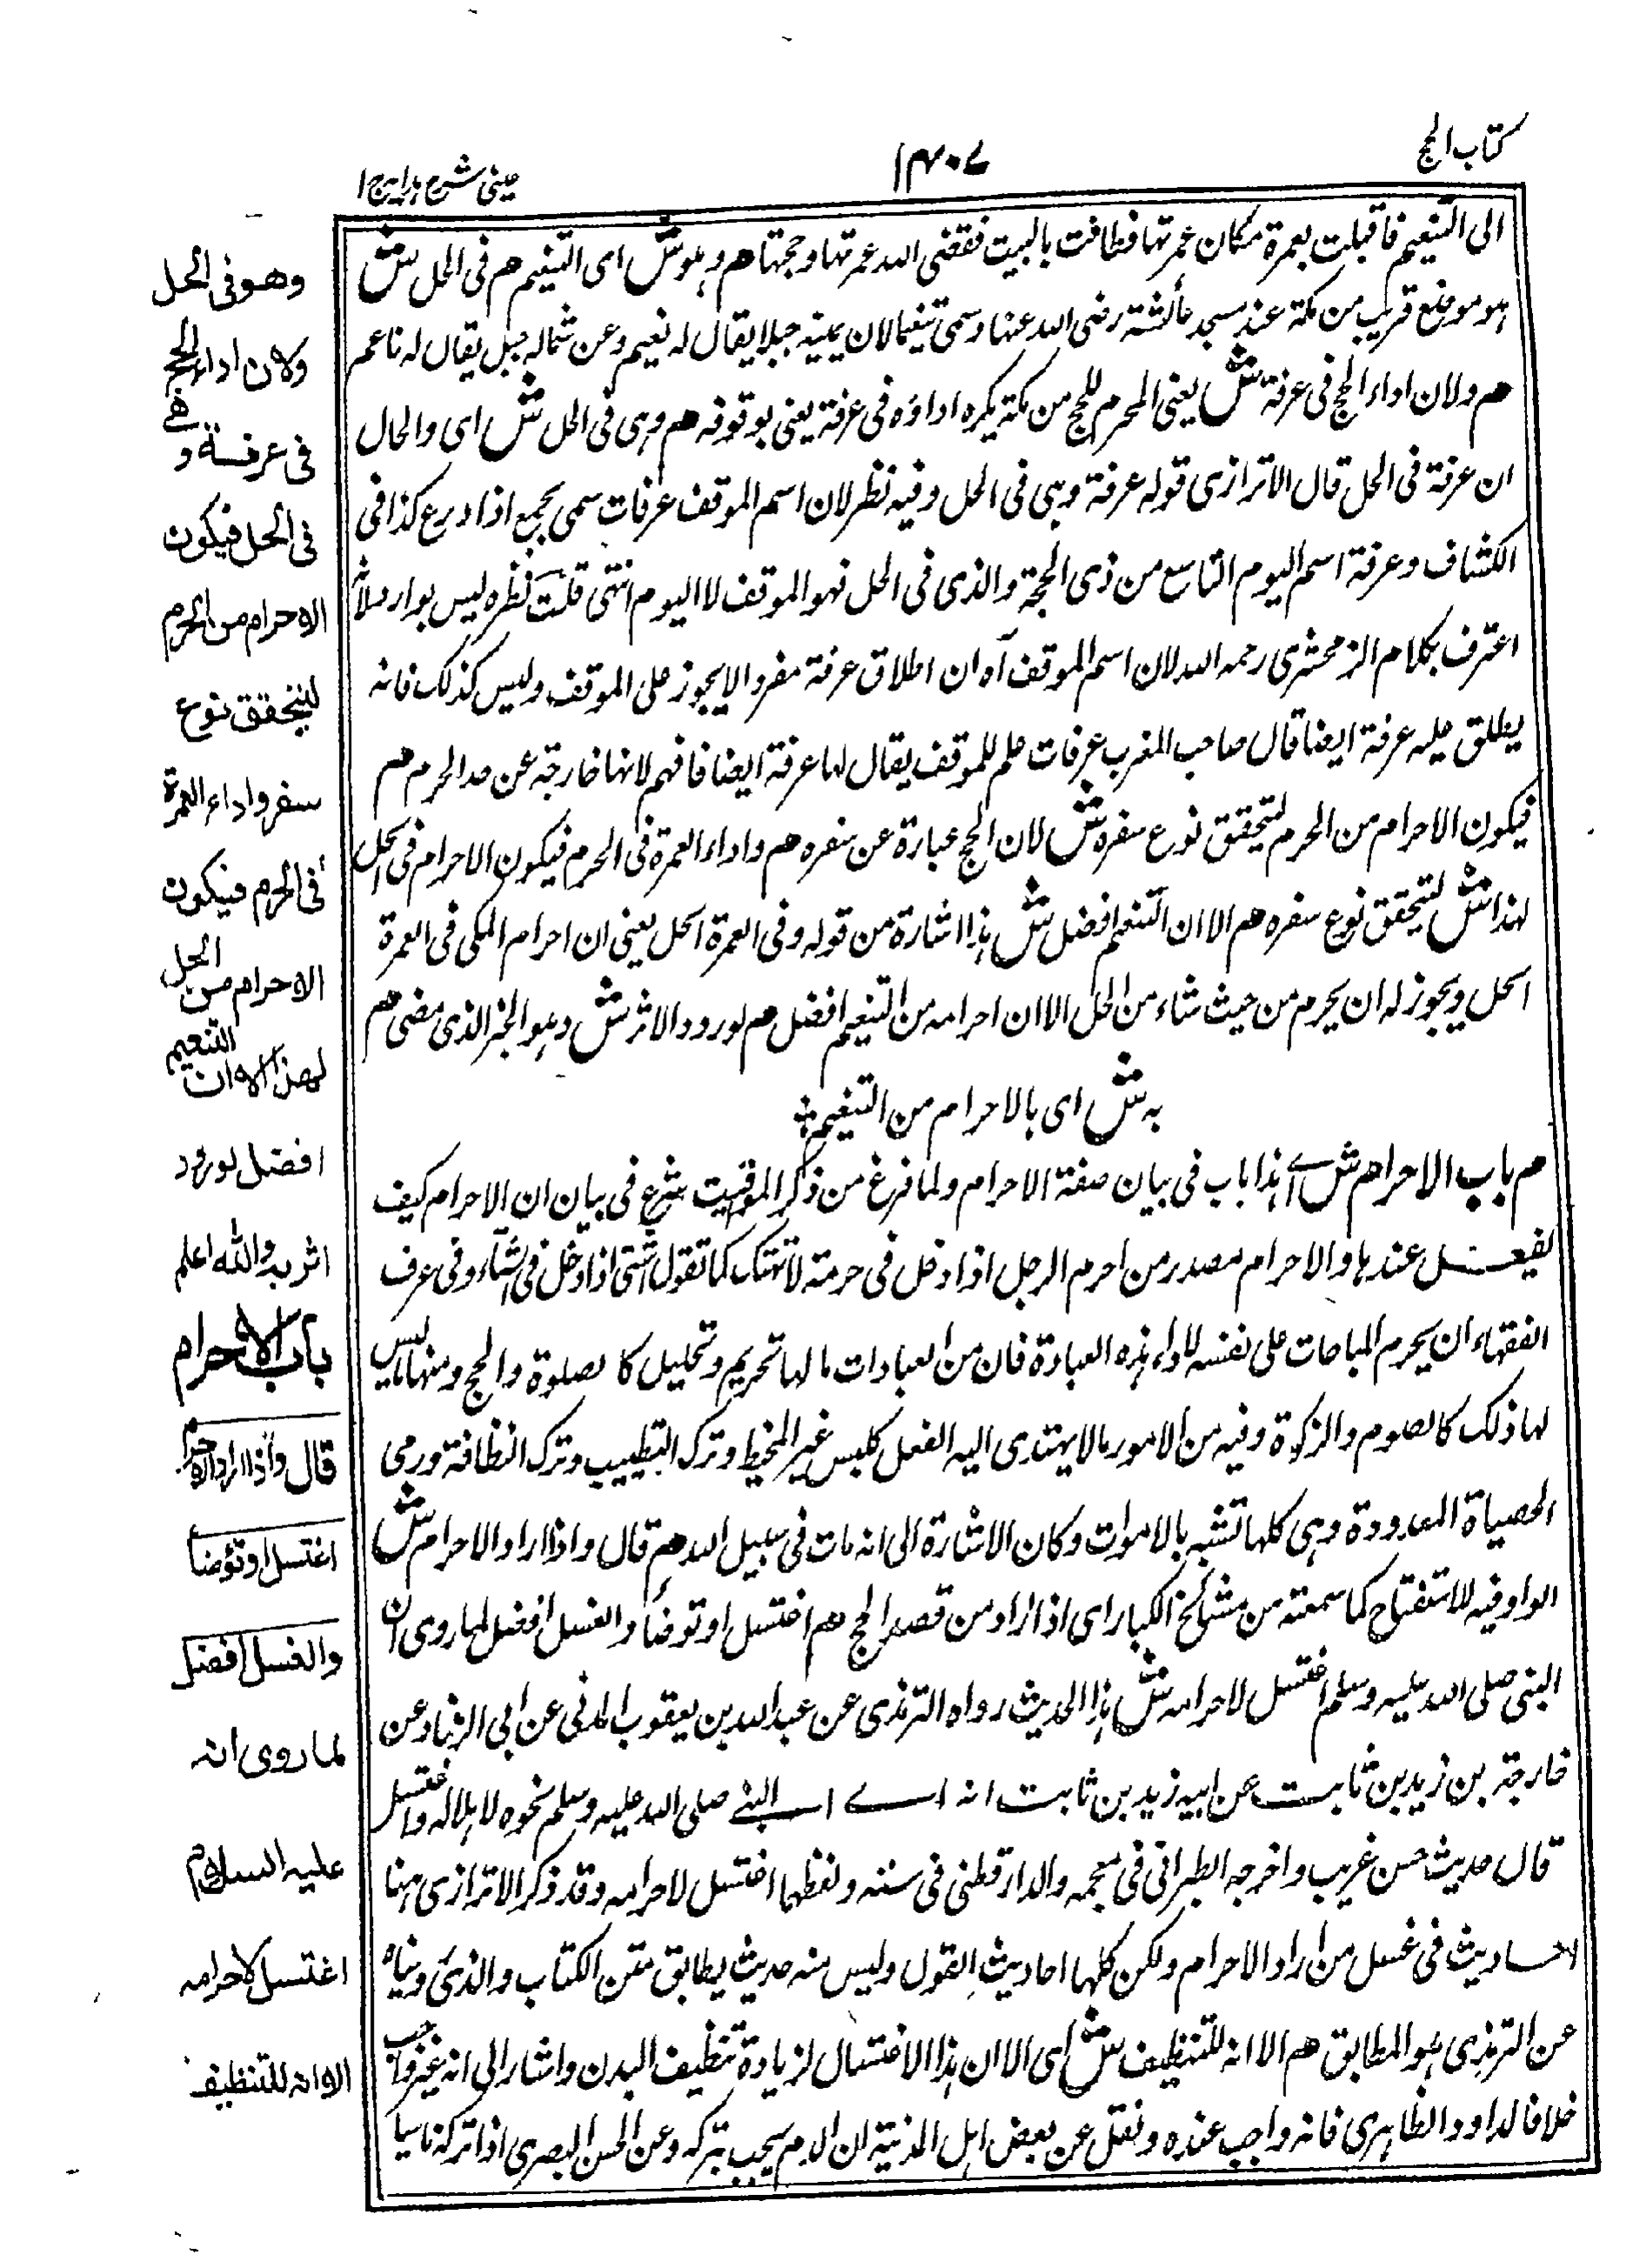 كتاب الحج
١٤٠٧
عينى شرح هدايه ج ١
الى التنعيم فاقبلت بعمرة مكان عمرتها فطافت بالبيت فقضى الله عمرتها وحجتها هم وهو ش اى التنعيم هم فى الحل ش
هو موضع قريب من مكة عند مسجد عائشة رضى الله عنها وسمى تنعيما لان يمينه جبلا يقال له نعيم وعن شماله جبل يقال له ناعم
هم ولان اداء الحج فى عرفة ش يعنى المحرم للحج من مكة يكره اداؤه فى عرفة يعنى بوقوفه هم وهى فى الحل ش اى والحال
ان عرفة فى الحل قال الاترازى قوله عرفة وهى فى الحل وفيه نظر لان اسم الموقف عرفات سمى بجمع اذا درع كذا فى
الكشاف وعرفة اسم اليوم التاسع من ذى الحجة والذى فى الحل فهو الموقف لا اليوم انتهى قلت نظره ليس بوارد لانه
اعترف بكلام الزمخشرى رحمه الله لان اسم الموقف آه ان اطلاق عرفة مفردا لا يجوز على الموقف وليس كذلك فانه
يطلق عليه عرفة ايضا قال صاحب المغرب عرفات علم للموقف يقال لها عرفة ايضا فافهم لانها خارجة عن حد الحرم هم
فيكون الاحرام من الحرم لتحقق نوع سفره ش لان الحج عبارة عن سفره هم واداء العمرة فى الحرم فيكون الاحرام فى الحل
لهذا ش لتحقق نوع سفره هم الا ان التنعيم افضل ش هذا اشارة من قوله وفى العمرة الحل يعنى ان احرام المكى فى العمرة
الحل ويجوز له ان يحرم من حيث شاء من الحل الا ان احرامه من التنعيم افضل هم لورود الاثر ش وهو الخبر الذى مضى هم
به ش اى بالاحرام من التنعيم
هم باب الاحرام ش اے هذا باب فى بيان صفة الاحرام ولما فرغ من ذكر المواقيت شرع فى بيان ان الاحرام كيف
يفعل عندها والاحرام مصدر من احرم الرجل اذا دخل فى حرمة لا تهتك كما تقول اشتى اذا دخل فى الشتاء وفى عرف
الفقهاء ان يحرم المباحات على نفسه لاداء هذه العبادة فان من العبادات ما لها تحريم وتحليل كالصلوة والحج ومنها ما ليس
لها ذلك كالصوم والزكوة وفيه من الامور ما لا يهتدى اليه الفعل كلبس غير المخيط وترك التطييب وترك النظافة ورمى
الحصياة المعدودة وهى كلها تشبه بالاموات وكان الاشارة الى انه مات فى سبيل الله هم قال واذا اراد الاحرام ش
الواو فيه للاستفتاح كما سمعته من مشائخ الكبار اى اذا اراد من قصد الحج هم اغتسل او توضأ والغسل افضل لما روى ان
النبى صلى الله عليه وسلم اغتسل لاحرامه ش هذا الحديث رواه الترمذى عن عبد الله بن يعقوب المدنى عن ابى الزناد عن
خارجة بن زيد بن ثابت عن ابيه زيد بن ثابت انه اے النبے صلى الله عليه وسلم نحوه لاهلاله واغتسل
قال حديث حسن غريب واخرجه الطبرانى فى معجمه والدارقطنى فى سننه ولفظهما اغتسل لاحرامه وقد ذكر الاترازى هنا
احاديث فى غسل من اراد الاحرام ولكن كلها احاديث القول وليس منه حديث يطابق متن الكتاب والذى رويناه
عن الترمذى هو المطابق هم الا انه للتنظيف ش اى الا ان هذا الاغتسال لزيادة تنظيف البدن واشار الى انه غير واجب
خلافا لداود الظاهرى فانه واجب عنده ونقل عن بعض اهل المدينة ان الدم يجب بتركه وعن الحسن البصرى اذا تركه ناسيا
وهو فى الحل
ولان اداء الحج
فى عرفة وهى
فى الحل فيكون
الاحرام من الحرم
ليتحقق نوع
سفر واداء العمرة
فى الحرم فيكون
الاحرام من الحل
لهذا الا ان التنعيم
افضل لورود
اثر به والله اعلم
باب الاحرام
قال واذا اراد الاحرام
اغتسل او توضأ
والغسل افضل
لما روى انه
عليه السلام
اغتسل لاحرامه
الا انه للتنظيف